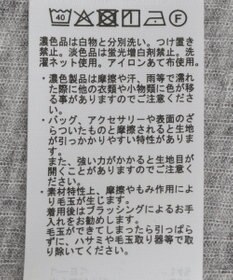 40
濃色品は白物と分別洗い。つけ置き
禁止。淡色は蛍光増白剤禁止。洗
濯ネット使用。アイロンあて布使用。
・濃色製品は摩擦や汗、雨等で濡れ
た際に他の衣類や小物類に色が移
る事がありますのでご注意くださ
い。
・バッグ、アクセサリーや表面のざ
らついたものと摩擦されると生地
が引っかかりやすい特性がありま
す。
また、強い力がかかると生地目が
開くことがありますのでご注意く
ださい。
・素材特性上、摩擦やもみ作用によ
り毛玉が発生します。
着用後はブラッシングによるお手
入れをお勧めします。
毛玉ができてしまったら引っぱらず
に、ハサミや毛玉取り器等で取り
除いてください。